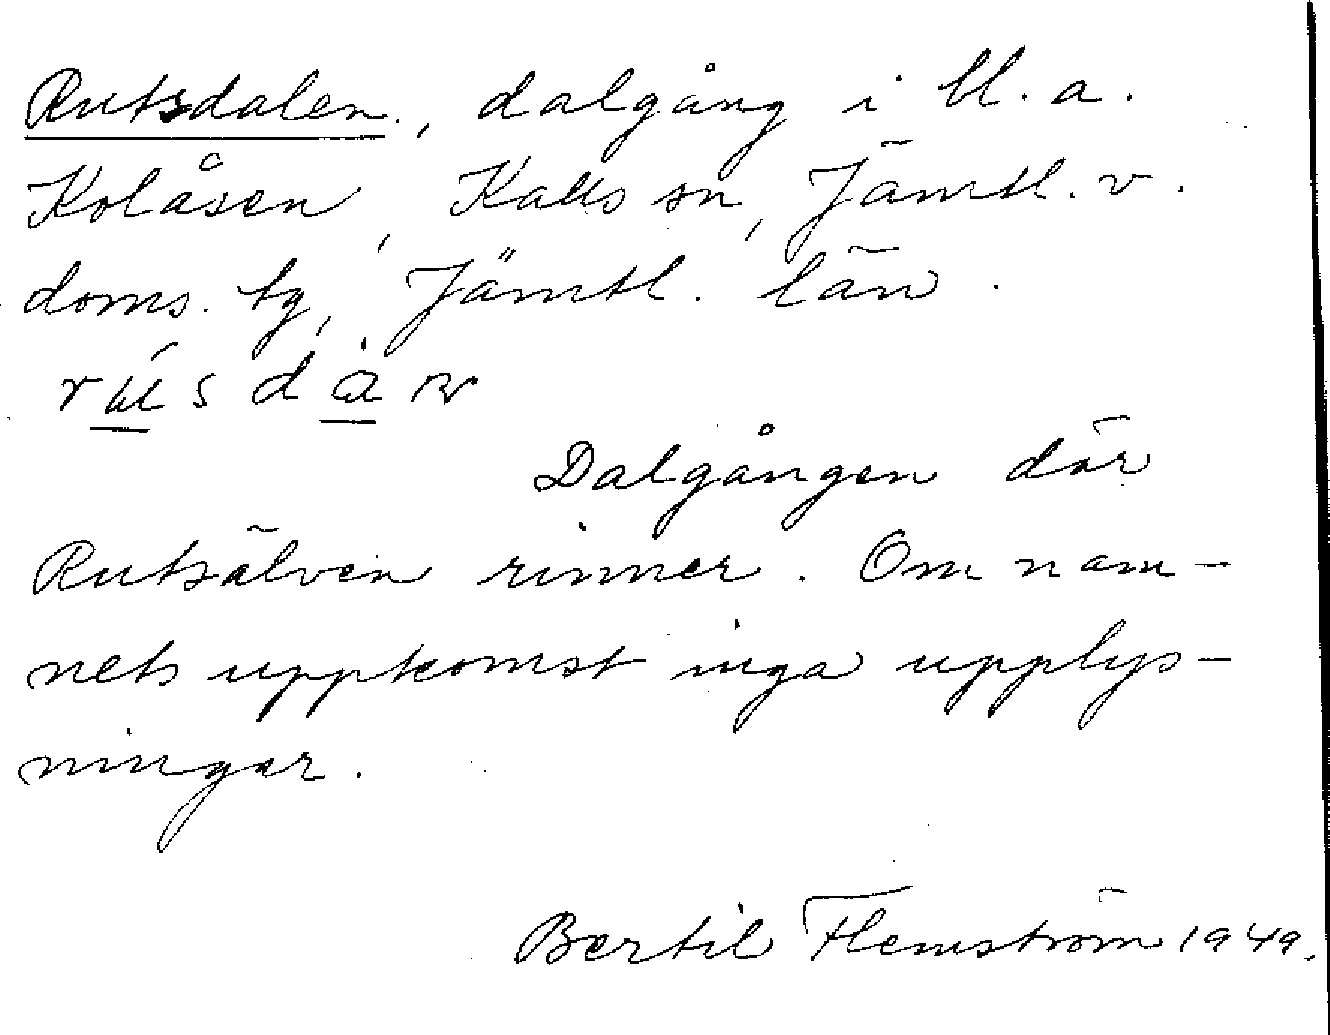 Rutsdalen., dalgång i bl. a.
Kolåsen, Kalls sn, Jämtl. v.
doms. tg, Jämtl. län.
Dalgången där
Rutsälven rinner. Om nam-
nets uppkomst inga upplys-
ningar.
Bertil Flemström 1949.